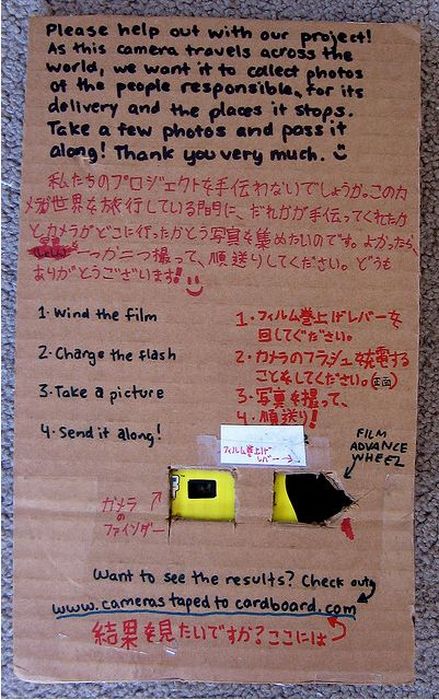 Please help out with our project!
As this camera travels across the
world, we want it to collect photos
of the people responsible for its
delivery and the places it stops.
Take a few photos and pass it
along! Thank you very much.
私たちのプロジェクトを手伝わないでしょうか。このカ
メラが世界を旅行している間に、だれかが手伝ってくれたか
とカメラがどこに行ったかとう写真を集めたいのです。よかったら、
一つか二つ撮って、順送りしてください。どうも
ありがとうございます!
1. Wind the film
2. Charge the flash
3. Take a picture
4. Send it along!
1. フィルム巻上げレバーを
回してください。
2. カメラのフラシュを充電する
ことをしてください。
3. 写真を撮って、
4. 順送り!
フィルム巻上げ
レバー→
FILM
ADVANCE
WHEEL
カメラ
の
ファインダー
Want to see the results? Check out
www.camerastapedtocardboard.com
結果を見たいですか?ここには